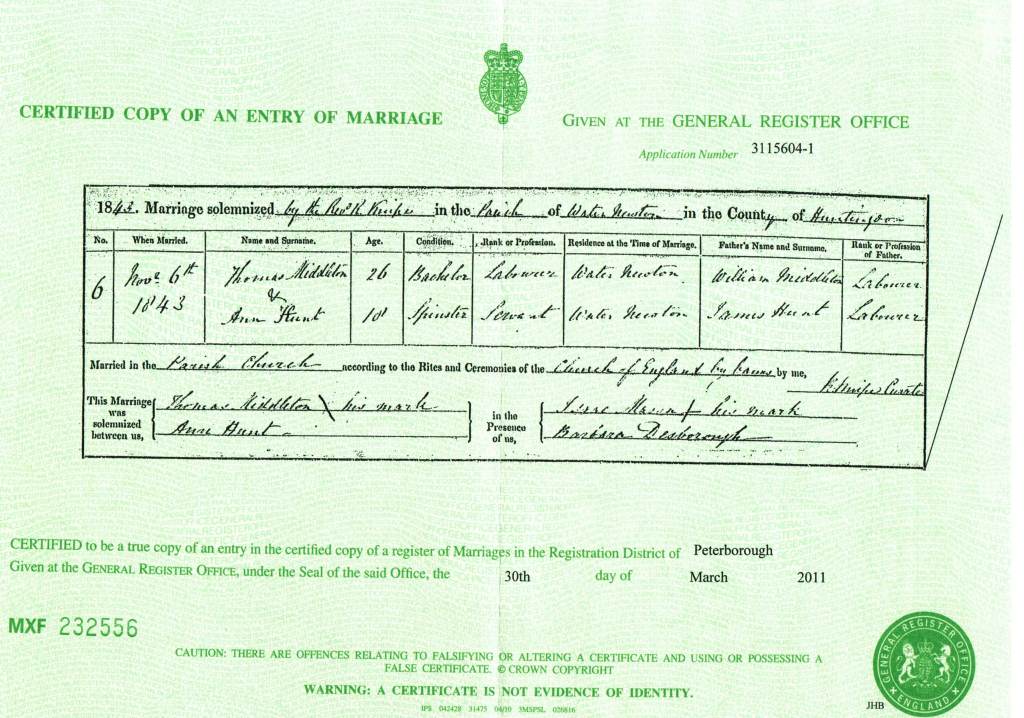 CERTIFIED COPY OF AN ENTRY OF MARRIAGE
GIVEN AT THE GENERAL REGISTER OFFICE
Application Number 3115604-1
1843. Marriage solemnized by the Revd K Knipe in the Parish of Water Newton in the County of Huntingdon
No. When Married. Name and Surname. Age. Condition. Rank or Profession. Residence at the Time of Marriage. Father's Name and Surname. Rank or Profession of Father.
6 Novr 6th 1843 Thomas Middleton 26 Bachelor Labourer Water Newton William Middleton Labourer
& Ann Hunt 18 Spinster Servant Water Newton James Hunt Labourer
Married in the Parish Church according to the Rites and Ceremonies of the Church of England by banns by me,
Knipe Curate
This Marriage was solemnized between us, Thomas Middleton his mark
Ann Hunt
in the Presence of us, Isaac Mason his mark
Barbara Desborough
CERTIFIED to be a true copy of an entry in the certified copy of a register of Marriages in the Registration District of Peterborough
Given at the GENERAL REGISTER OFFICE, under the Seal of the said Office, the 30th day of March 2011
MXF 232556
CAUTION: THERE ARE OFFENCES RELATING TO FALSIFYING OR ALTERING A CERTIFICATE AND USING OR POSSESSING A
FALSE CERTIFICATE. © CROWN COPYRIGHT
WARNING: A CERTIFICATE IS NOT EVIDENCE OF IDENTITY.
IPS 042428 31475 04/10 3MSPSL 026816
GENERAL REGISTER OFFICE
ENGLAND
JHB